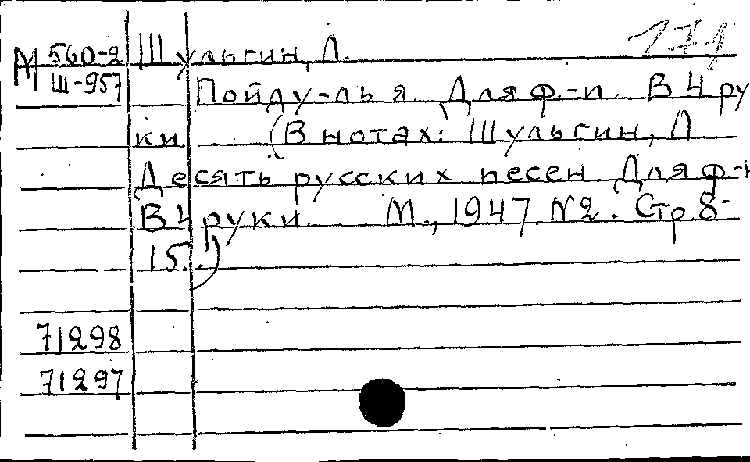 171
М 560-2 Шульгин, Л.
Ш-957
Пойду-ль я. Для ф-п. В 4 ру
ки (В нотах: Шульгин, Л
Десять русских песен. Для ф-п
В 4 руки. М., 1947. №2. Стр 8-
15.)
71298
71297